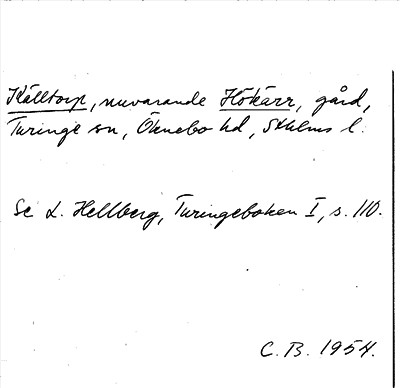 Källtorp, nuvarande Hökärr, gård,
Turinge sn, Öknebo hd, Sthlms l.
Se L. Hellberg, Turingeboken I, s. 110.
C. B. 1954.